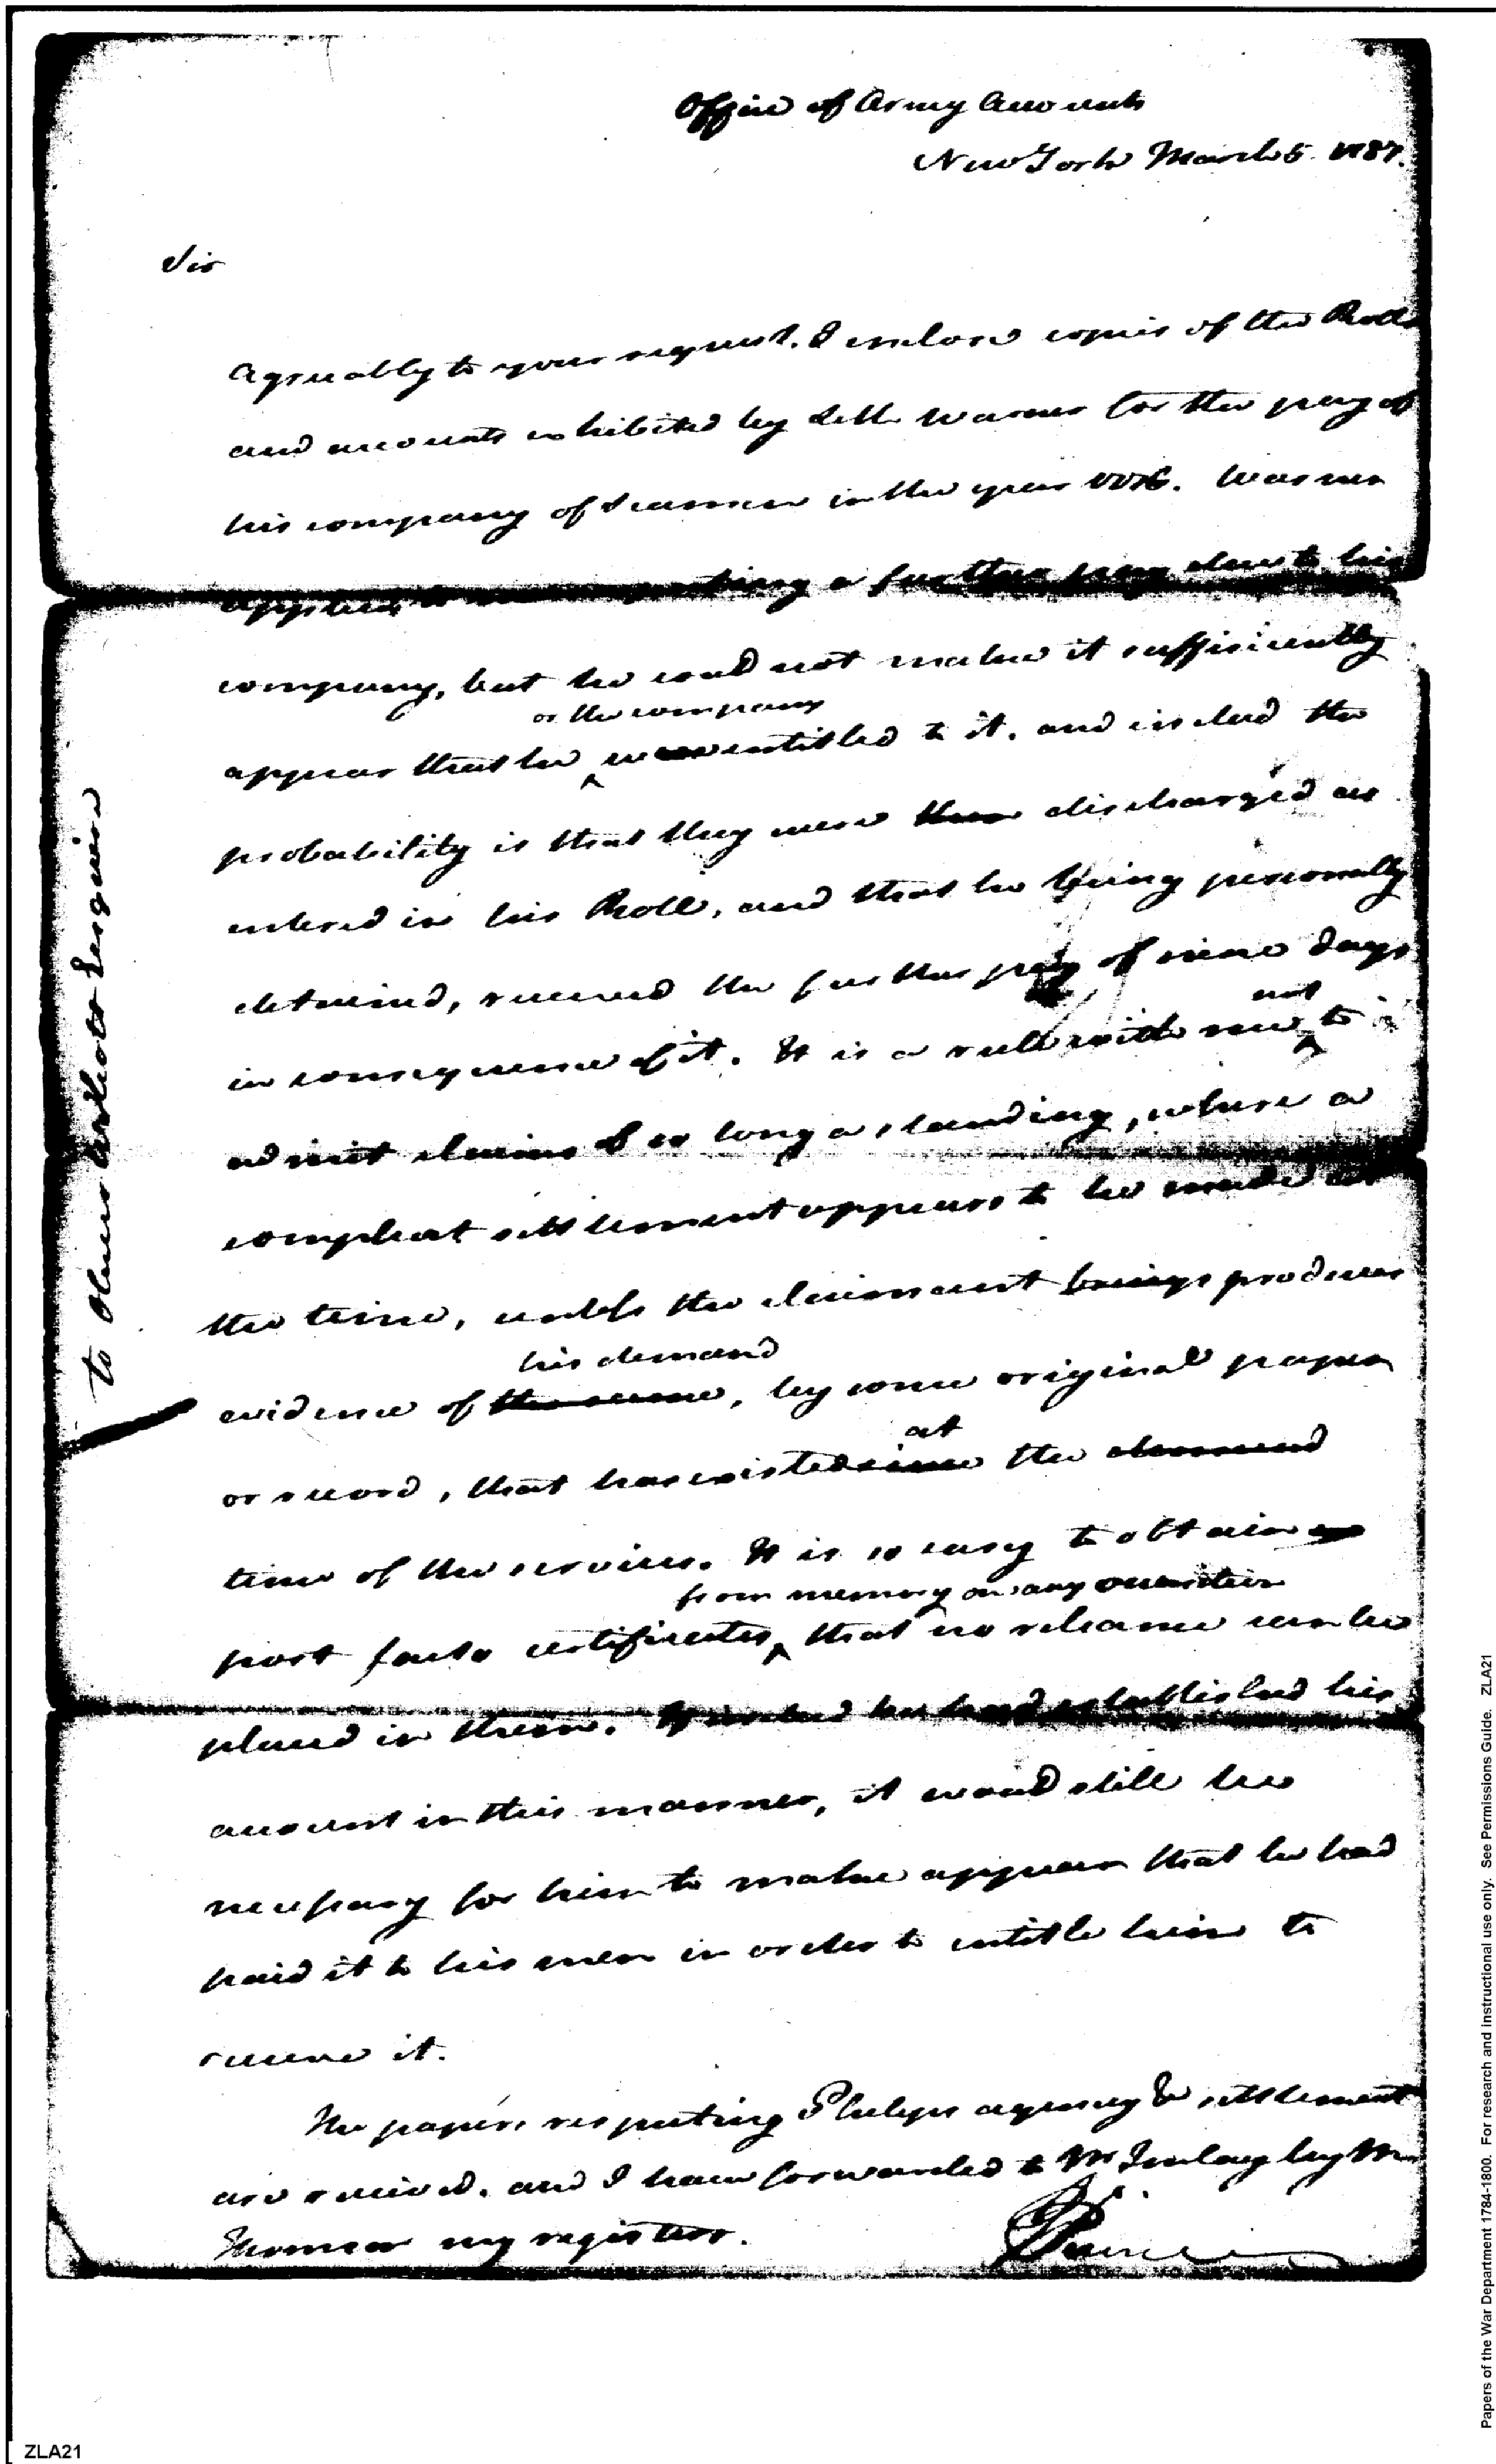 Office of Army Accounts
New York March 5. 1787.
Sir
Agreeably to your request. I enclose copies of the Rolls
and accounts exhibited by Seth Warner for the pay of
his company of Seamen in the year 1776. Warner
applied to me respecting a further pay due to his
company, but he coud not make it sufficiently
or the company
appear that he was entitled to it. and indeed the
probability is that they were then discharged as
entered in his Roll, and that he being personally
detained, received the further pay of nine days
not
in consequence of it. It is a rule with me to
admit claims of so long a standing, where a
compleat settlement appears to be made at
the time, unless the claimant brings produces
his demand
evidence of the same, by some original paper
at
or record, that has existed since the demand
time of the services. It is so easy to obtain
from memory on any occasion
post facto certificates, that no reliance can be
placed in them. If indeed he had established his
account in this manner, it woud still be
necessary for him to make appear that he had
paid it to his men in order to entitle him to
receive it.
The papers respecting Phelps agency & settlement
are received. and I have forwarded to Mr Imlay by Mr
Thomson my register.
Pierce
to Oliver Wolcott Esquire
ZLA21
Papers of the War Department 1784-1800. For research and instructional use only. See Permissions Guide. ZLA21